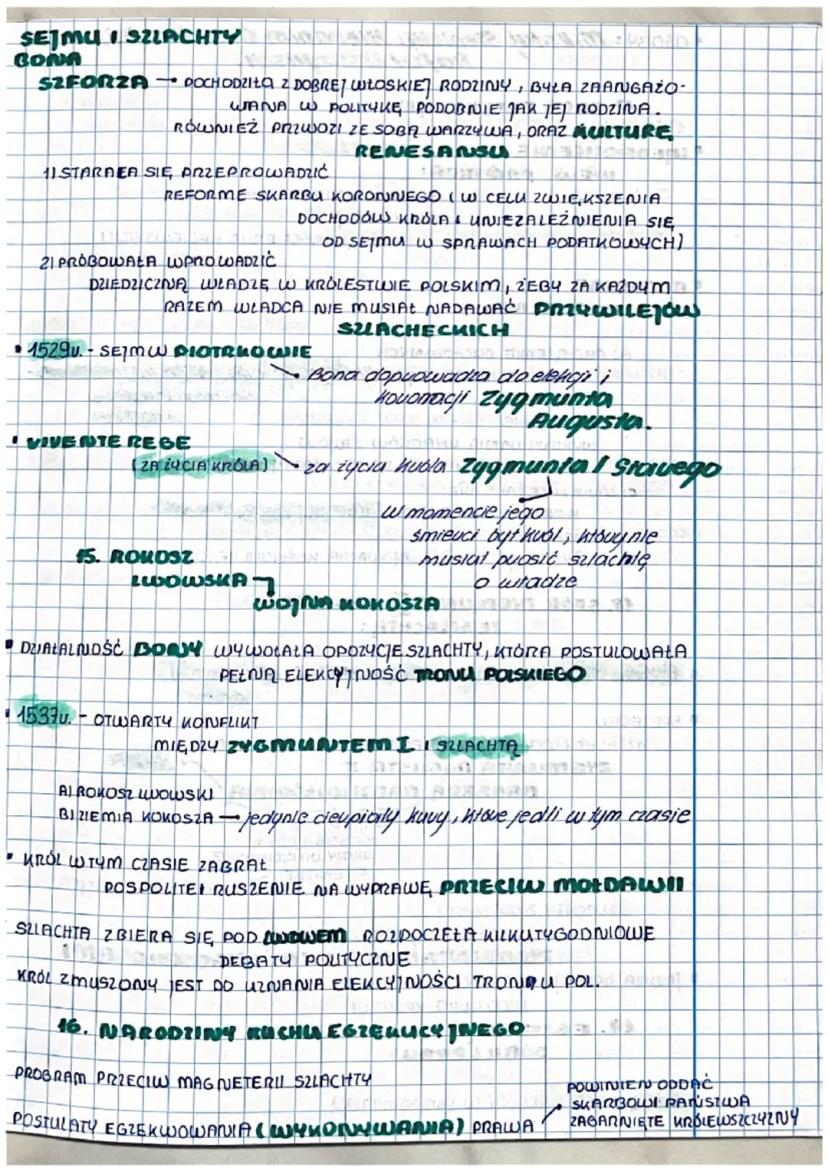 SEJMU I SZLACHTY
BONA
SZFORZA → POCHODZIŁA Z DOBREJ WŁOSKIEJ RODZINY, BYŁA ZAANGAŻO-
WANA W POLITYKĘ PODOBNIE JAK JEJ RODZINA.
RÓWNIEŻ PRZWOZI ZE SOBĄ WARZYWA, ORAZ KULTURĘ
RENESANSU
1) STARAŁA SIĘ PRZEPROWADZIĆ
REFORME SKARBU KORONNEGO (W CELU ZWIĘKSZENIA
DOCHODÓW KRÓLA I UNIEZALEŻNIENIA SIĘ
OD SEJMU W SPRAWACH PODATKOWYCH)
2) PRÓBOWAŁA WPROWADZIĆ
DZIEDZICZNĄ WŁADZĘ W KRÓLESTWIE POLSKIM, ŻEBY ZA KAŻDYM
RAZEM WŁADCA NIE MUSIAŁ NADAWAĆ PRZYWILEJÓW
SZLACHECKICH
• 1529r. - SEJM W PIOTRKOWIE
Bona doprowadza do elekcji i
koronacji Zygmunta
Augusta.
• VIVENTE REBE
(ZA ŻYCIA KRÓLA) za życia króla Zygmunta I Starego
w momencie jego
śmierci był król, który nie
musiał prosić szlachtę
o władze
15. ROKOSZ
LWOWSKA
WOJNA KOKOSZA
• DZIAŁALNOŚĆ BONY WYWOŁAŁA OPOZYCJE SZLACHTY, KTÓRA POSTULOWAŁA
PEŁNĄ ELEKCYJNOŚĆ TRONU POLSKIEGO
• 1537r. - OTWARTY KONFLIKT
MIĘDZY ZYGMUNTEM I I SZLACHTĄ
A) ROKOSZ LWOWSKI
B) ZIEMIA KOKOSZA → jedynie cierpiały kury, które jedli w tym czasie
• KRÓL W TYM CZASIE ZABRAŁ
POSPOLITE RUSZENIE NA WYPRAWĘ PRZECIW MOŁDAWII
SZLACHTA ZBIERA SIĘ POD LWOWEM ROZPOCZĘŁA KILKUTYGODNIOWE
DEBATY POLITYCZNE
KRÓL ZMUSZONY JEST DO UZNANIA ELEKCYJNOŚCI TRONU POL.
16. NARODZINY RUCHU EGZEKUCYJNEGO
PROGRAM PRZECIW MAGNETERII SZLACHTY
POSTULATY EGZEKWOWANIA (WYKONYWANIA) PRAWA
POWINIEN ODDAĆ
SKARBOWI PAŃSTWA
ZAGARNIĘTE KRÓLEWSZCZYZNY